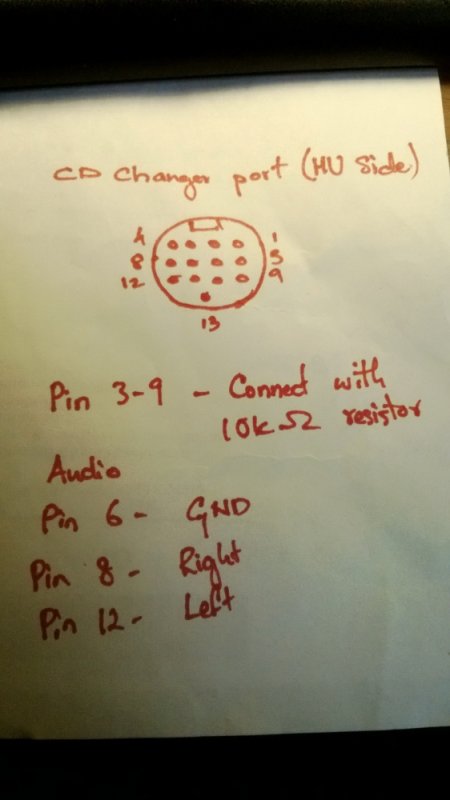 CD Changer port (HU Side)
4 1
8 5
12 9
13
Pin 3-9 - Connect with
10kΩ resistor
Audio
Pin 6- GND
Pin 8- Right
Pin 12- Left